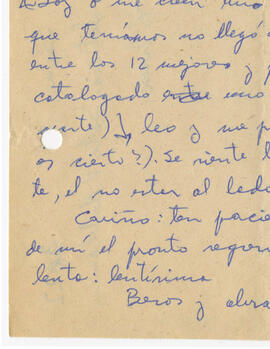 soy o me creen uno
que teníamos no llegó a
entre los 12 mejores y p
catalogado entre uno
mente) leo y me p
es cierto?). Se siente l
te, el no estar al lado
Cariño: ten pacie
de mí el pronto regre
lenta: lentísima
Besos y abra